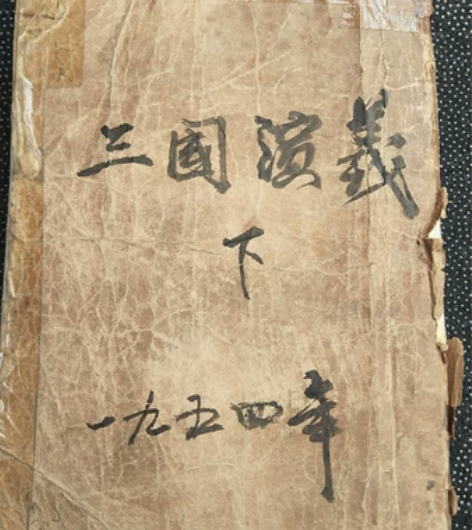 三國演義
下
一九五四年